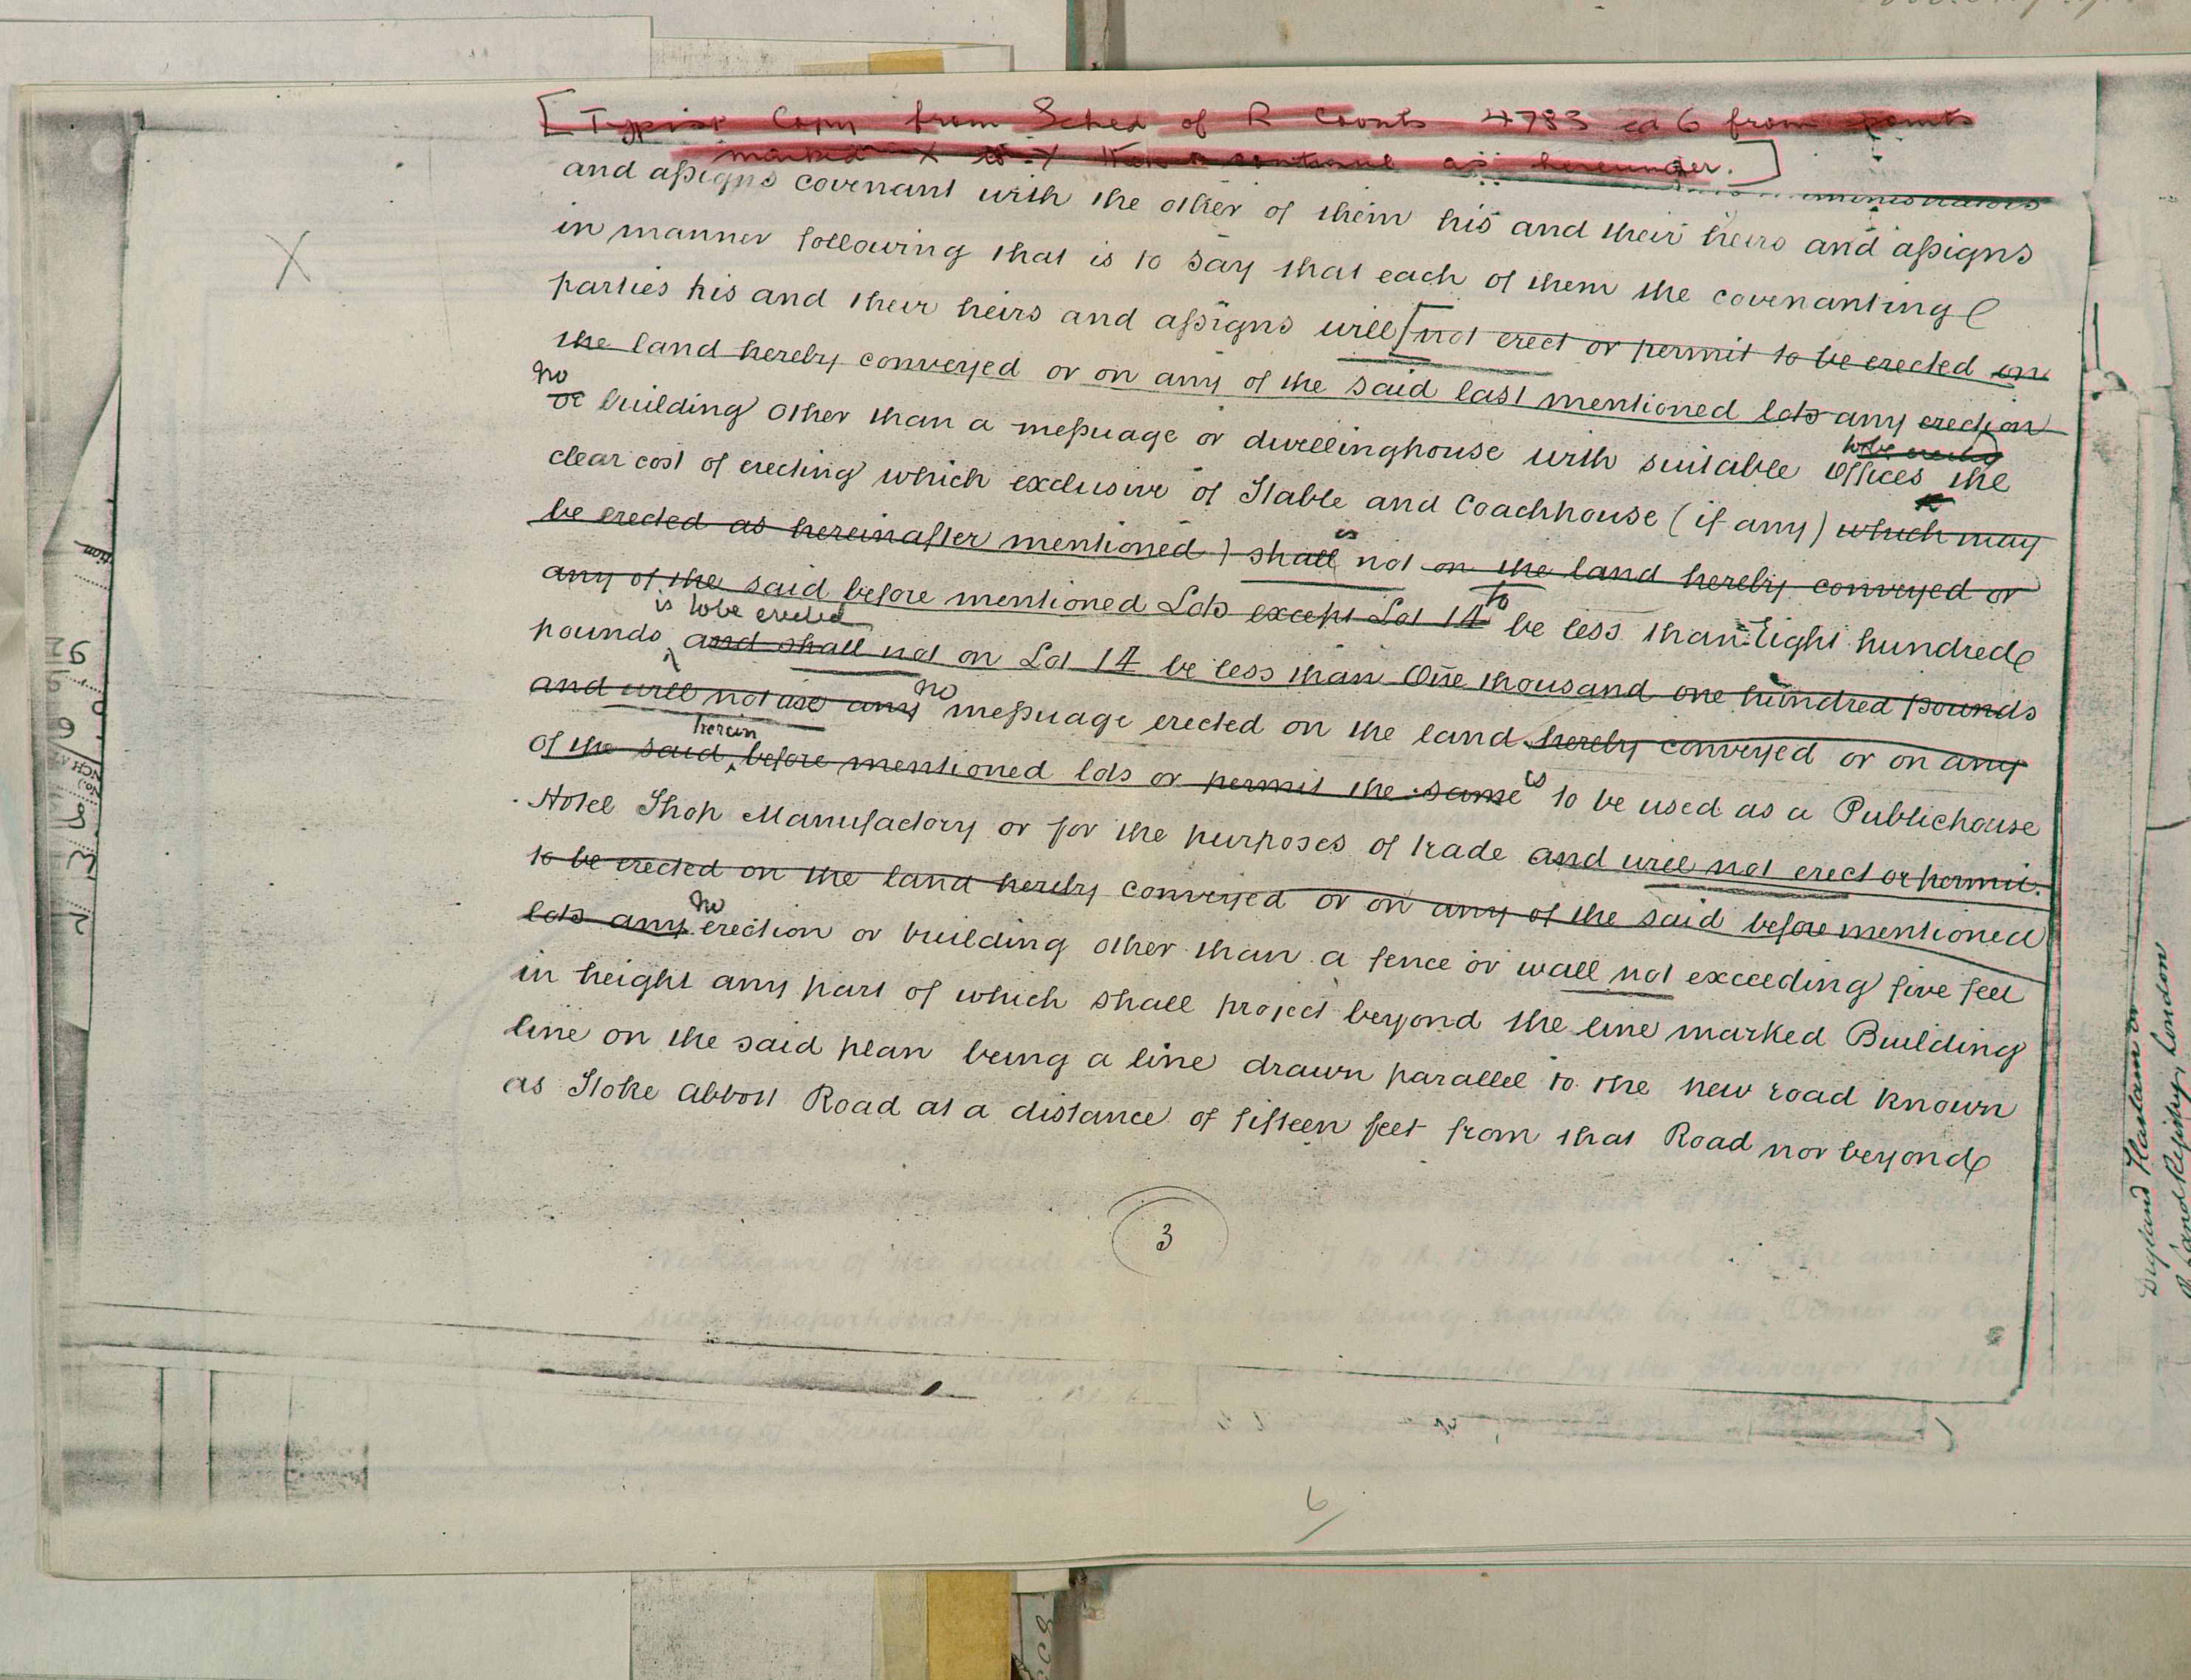 [Typist Copy from Sched of R Covnts 4783 ed 6 from points
marked X to Y then continue as hereunder.]
administrators
and assigns covenant with the other of them his and their heirs and assigns
in manner following that is to say that each of them the covenanting
parties his and their heirs and assigns will [not erect or permit to be erected on
the land hereby conveyed or on any of the said last mentioned lots any erection
no
or building other than a messuage or dwellinghouse with suitable Offices the
to be erected
clear cost of erecting which exclusive of Stable and Coachhouse (if any) which may
is
be erected as hereinafter mentioned) shall not on the land hereby conveyed or
to
any of the said before mentioned Lots except Lot 14 be less than Eight hundred
is to be erected
pounds and shall not on Lot 14 be less than One thousand one hundred pounds
no
and will not use any messuage erected on the land hereby conveyed or on any
herein
is
of the said before mentioned lots or permit the same to be used as a Publichouse
Hotel Shop Manufactory or for the purposes of trade and will not erect or permit
to be erected on the land hereby conveyed or on any of the said before mentioned
no
lots any erection or building other than a fence or wall not exceeding five feet
in height any part of which shall project beyond the line marked Building
line on the said plan being a line drawn parallel to the new road known
as Stoke Abbott Road at a distance of fifteen feet from that Road nor beyond
3
6
X
Land Registry, London